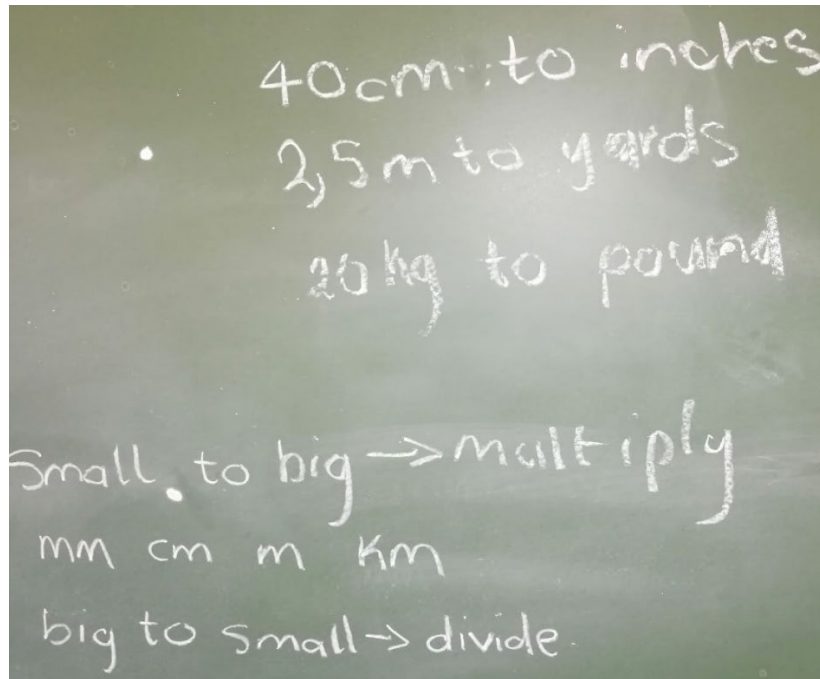 40cm to inches
2,5m to yards
20kg to pound
Small to big → multiply
mm cm m km
big to small → divide.